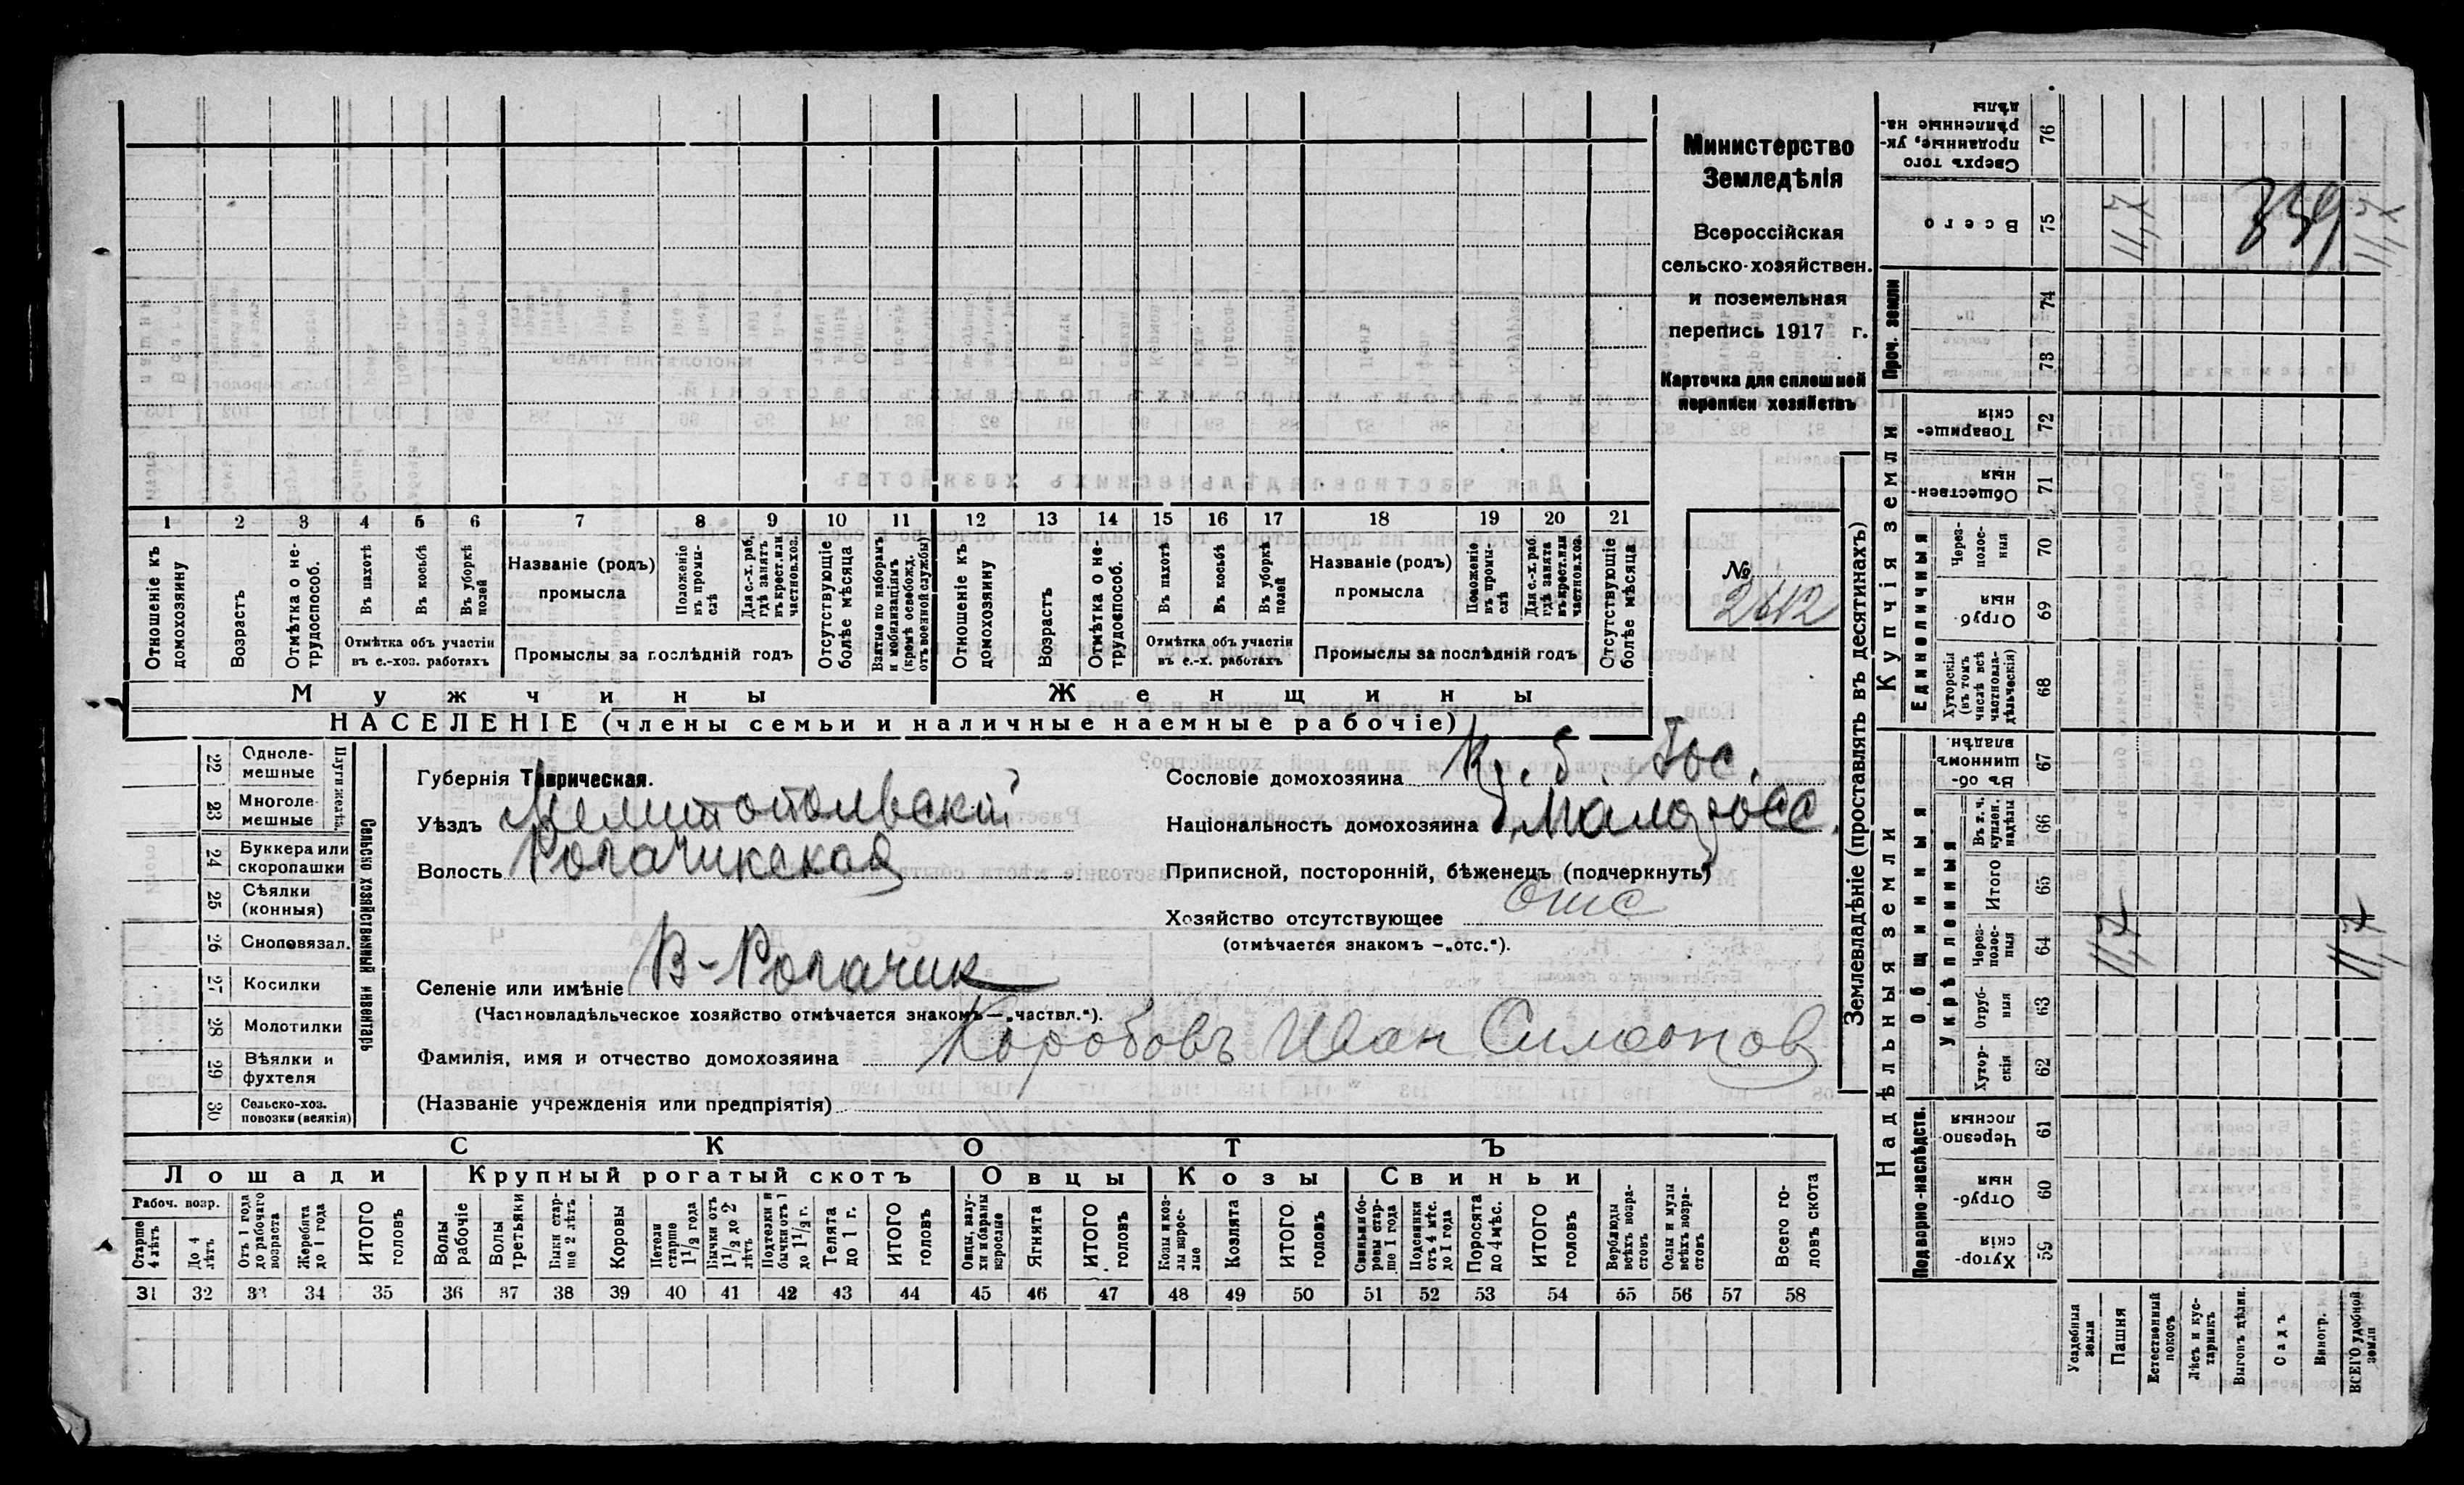 Министерство
Земледѣлія
Всероссійская
сельско-хозяйствен.
и поземельная
перепись 1917 г.
Карточка для сплошной
переписи хозяйствъ
№
2612
1 2 3 4 5 6 7 8 9 10 11 12 13 14 15 16 17 18 19 20 21
Отношеніе къ домохозяину
Возрастъ
Отмѣтка о не-трудоспособ.
Въ пахотѣ
Въ косьбѣ
Въ уборкѣ полей
Отмѣтка объ участіи
въ с.-хоз. работахъ
Названіе (родъ)
промысла
Положеніе въ промы-слѣ
Для с.-х. раб. гдѣ занятъ въ крест. или частновл. хоз.
Промыслы за послѣдній годъ
Отсутствующіе болѣе мѣсяца
Взятые по наборамъ и мобилизаціямъ (кромѣ освобожд. отъ военной службы)
Отношеніе къ домохозяину
Возрастъ
Отмѣтка о не-трудоспособ.
Въ пахотѣ
Въ косьбѣ
Въ уборкѣ полей
Отмѣтка объ участіи
въ с.-х. работахъ
Названіе (родъ)
промысла
Положеніе въ промы-слѣ
Для с.-х. раб. гдѣ занята въ крест. или частновл. хоз.
Промыслы за послѣдній годъ
Отсутствующіе болѣе мѣсяца
Мужчины Женщины
НАСЕЛЕНІЕ (члены семьи и наличные наемные рабочіе)
Сельско хозяйственный инвентарь
Плуги желѣз.
22 Одноле-мешные
23 Многоле-мешные
24 Буккера или скоропашки
25 Сѣялки (конныя)
26 Сноповязал.
27 Косилки
28 Молотилки
29 Вѣялки и фухтеля
30 Сельско-хоз. повозки (всякія)
Губернія Таврическая.
Уѣздъ Мелитопольскій
Волость Рогачикская
Сословіе домохозяина Кр. б. Гос.
Національность домохозяина Малоросс.
Приписной, посторонній, бѣженецъ (подчеркнуть)
Хозяйство отсутствующее отс
(отмѣчается знакомъ —„отс.“).
Селеніе или имѣніе В-Рогачик
(Частновладѣльческое хозяйство отмѣчается знакомъ—„частвл.“).
Фамилія, имя и отчество домохозяина Коробовъ Иван Симонов
(Названіе учрежденія или предпріятія)
СКОТЪ
Лошади Крупный рогатый скотъ Овцы Козы Свиньи
Рабоч. возр.
Старше 4 лѣтъ
До 4 лѣтъ
Отъ 1 года до рабочаго возраста
Жеребята до 1 года
ИТОГО головъ
Волы рабочіе
Волы третьяки
Быки стар-ше 2 лѣтъ
Коровы
Нетели старше 1 1/2 года
Бычки отъ 1 1/2 до 2 лѣтъ
Подтелки и бычки отъ 1 до 1 1/2 г.
Телята до 1 г.
ИТОГО головъ
Овцы, валу-хи и бараны взрослые
Ягнята
ИТОГО головъ
Козы и коз-лы взрос-лые
Козлята
ИТОГО головъ
Свиньи и бо-ровы стар-ше 1 года
Подсвинки отъ 4 мѣс. до 1 года
Поросята до 4 мѣс.
ИТОГО головъ
Верблюды всѣхъ возра-стовъ
Ослы и мулы всѣхъ возра-стовъ
Всего го-ловъ скота
31 32 33 34 35 36 37 38 39 40 41 42 43 44 45 46 47 48 49 50 51 52 53 54 55 56 57 58
Землевладѣніе (проставлять въ десятинахъ)
Надѣльныя земли
Купчія земли
Проч. земли
Подворно-наслѣдств.
Общинныя
Укрѣпленныя
Единоличныя
Сверхъ того проданные, ук-рѣпленные на-дѣлы 76
Всего 75
74
73
Товарище-скія 72
Обществен-ныя 71
Через-полос-ныя 70
Отруб-ныя 69
Хуторскія (въ томъ числѣ всѣ частновла-дѣльческія) 68
Въ об-щинномъ владѣн. 67
Въ т. ч. куплен. надѣлы 66
Итого 65
Через-полос-ныя 64
Отруб-ныя 63
Хутор-скія 62
Черезпо-лосныя 61
Отруб-ныя 60
Хутор-скія 59
Усадебныя земли
Пашня
Естественный покосъ
Лѣсъ и кус-тарникъ
Выгонъ дѣлин.
Садъ
Виногр.
ВСЕГО удобной земли
11,7
339
11,7
11,7
11,7